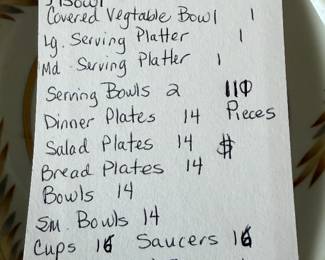 Covered Vegtable Bowl 1
Lg. Serving Platter 1
Md. Serving Platter 1
Serving Bowls 2 110
Dinner Plates 14 Pieces
Salad Plates 14 $
Bread Plates 14
Bowls 14
Sm. Bowls 14
Cups 16 Saucers 16